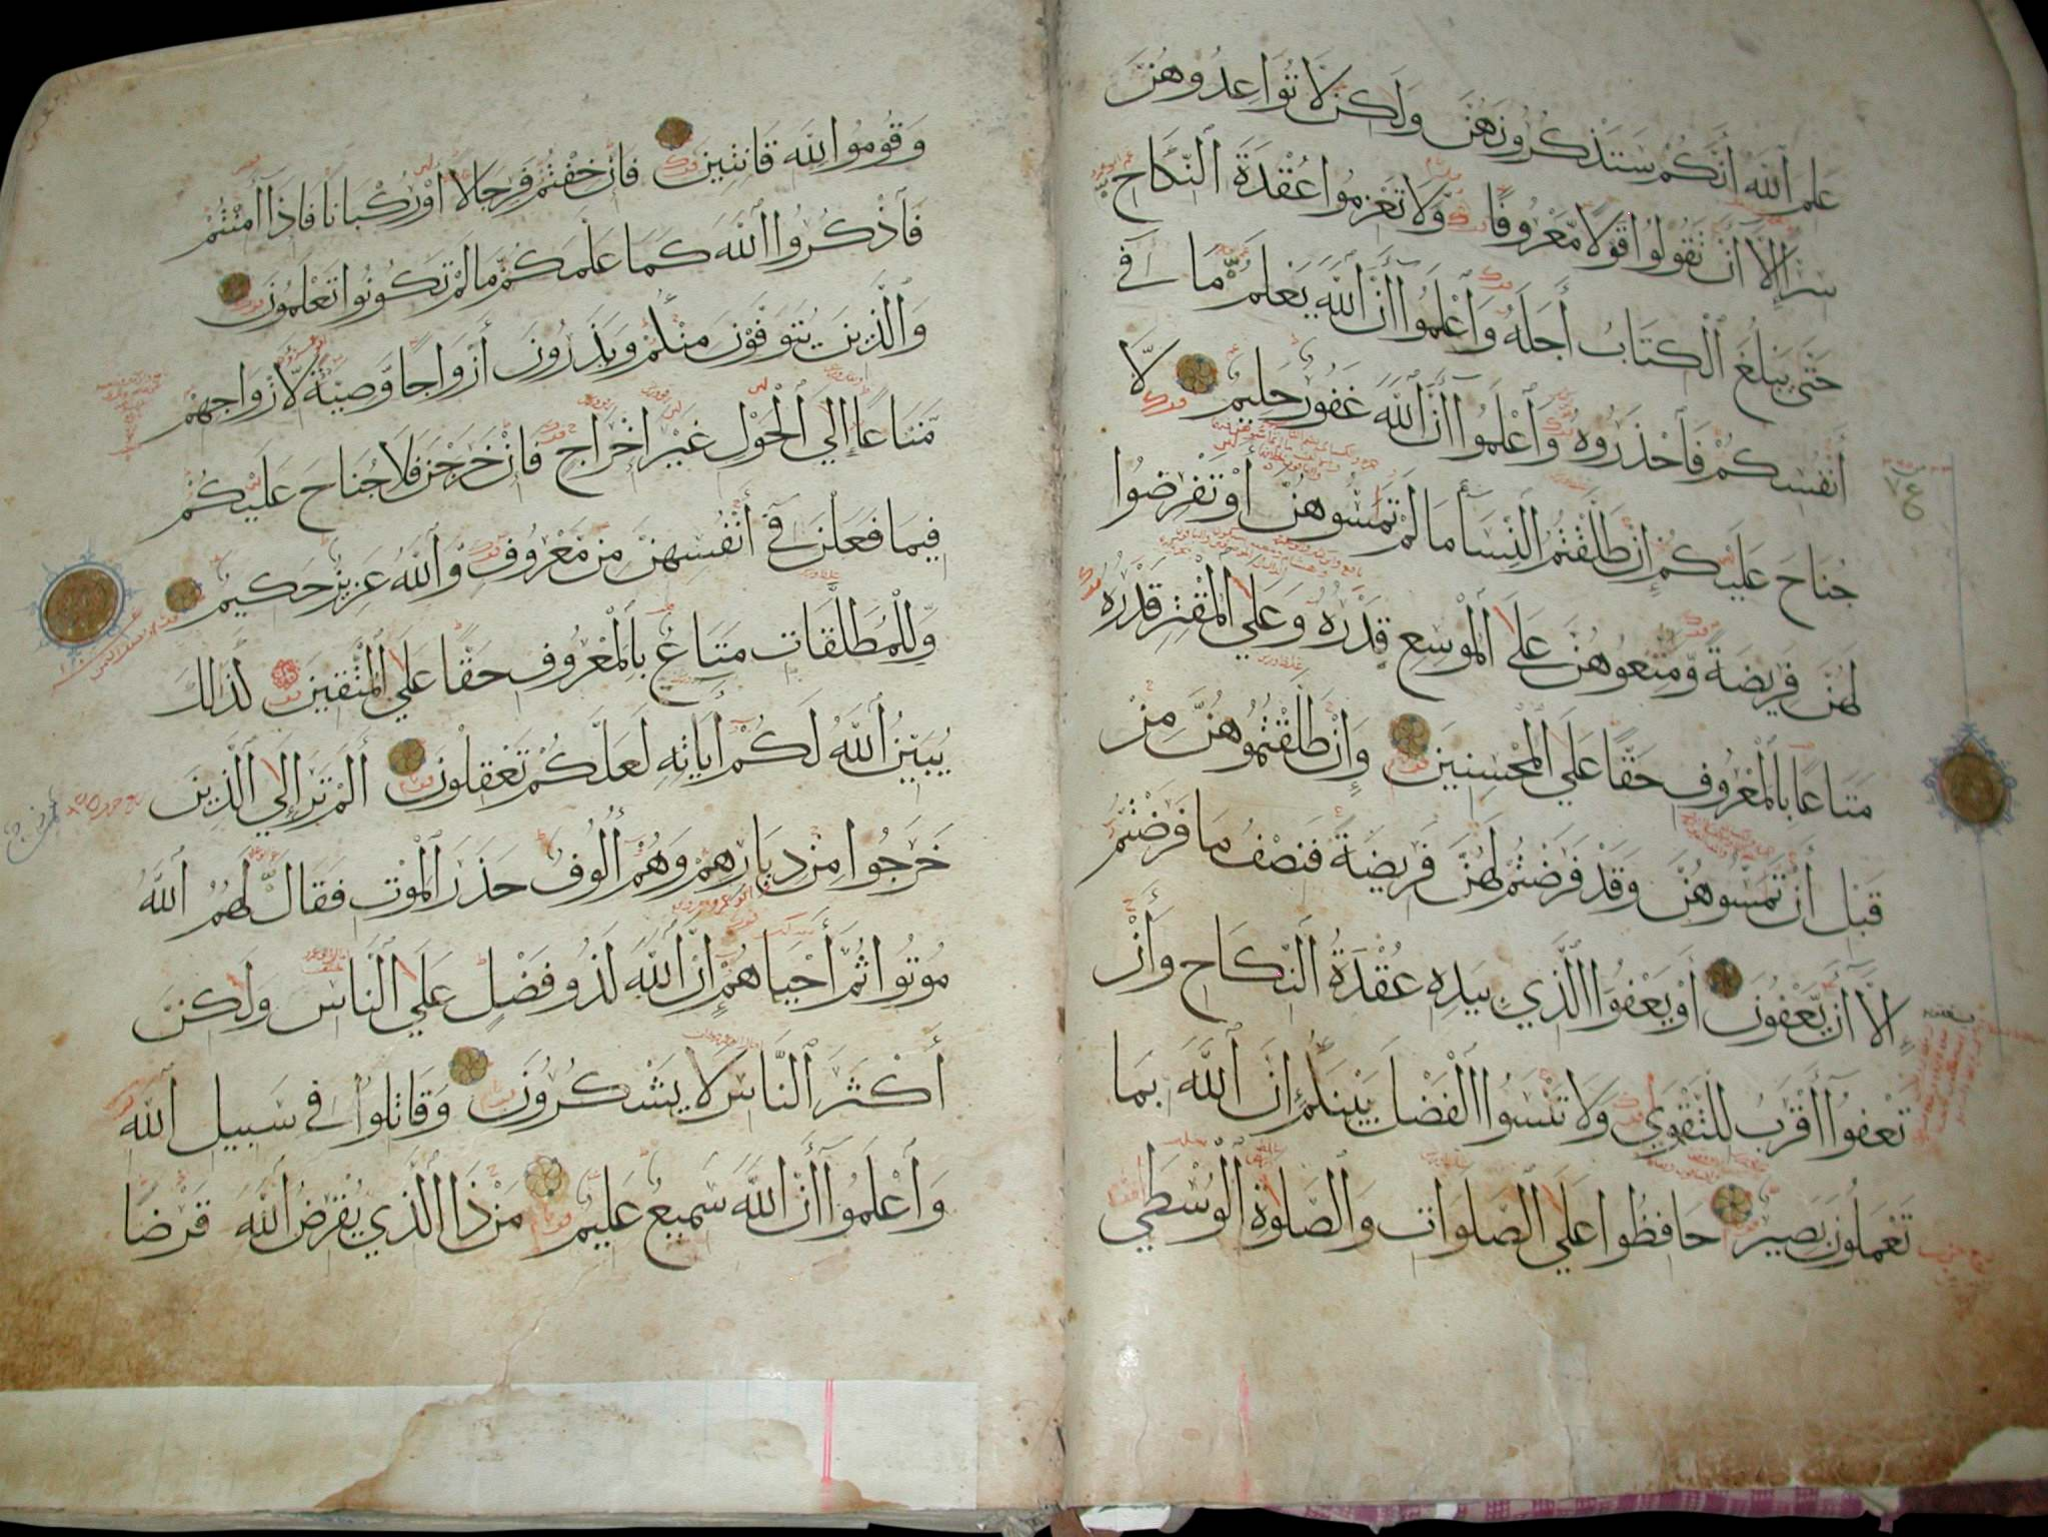 عَلِمَ اللَّهُ أَنَّكُمْ سَتَذْكُرُونَهُنَّ وَلَكِن لَّا تُوَاعِدُوهُنَّ
سِرًّا إِلَّا أَنْ تَقُولُوا قَوْلًا مَّعْرُوفًا وَلَا تَعْزِمُوا عُقْدَةَ النِّكَاحِ
حَتَّى يَبْلُغَ الْكِتَابُ أَجَلَهُ وَاعْلَمُوا أَنَّ اللَّهَ يَعْلَمُ مَا فِي
أَنْفُسِكُمْ فَاحْذَرُوهُ وَاعْلَمُوا أَنَّ اللَّهَ غَفُورٌ حَلِيمٌ لَّا
جُنَاحَ عَلَيْكُمْ إِنْ طَلَّقْتُمُ النِّسَاءَ مَا لَمْ تَمَسُّوهُنَّ أَوْ تَفْرِضُوا
لَهُنَّ فَرِيضَةً وَّمَتِّعُوهُنَّ عَلَى الْمُوسِعِ قَدْرُهُ وَعَلَى الْمُقْتِرِ قَدْرُهُ
مَتَاعًا بِالْمَعْرُوفِ حَقًّا عَلَى الْمُحْسِنِينَ وَإِنْ طَلَّقْتُمُوهُنَّ مِنْ
قَبْلِ أَنْ تَمَسُّوهُنَّ وَقَدْ فَرَضْتُمْ لَهُنَّ فَرِيضَةً فَنِصْفُ مَا فَرَضْتُمْ
إِلَّا أَنْ يَّعْفُونَ أَوْ يَعْفُوَا الَّذِي بِيَدِهِ عُقْدَةُ النِّكَاحِ وَأَنْ
تَعْفُوا أَقْرَبُ لِلتَّقْوَى وَلَا تَنْسَوُا الْفَضْلَ بَيْنَكُمْ إِنَّ اللَّهَ بِمَا
تَعْمَلُونَ بَصِيرٌ حَافِظُوا عَلَى الصَّلَوَاتِ وَالصَّلَوةِ الْوُسْطَى
وَقُومُوا لِلَّهِ قَانِتِينَ فَإِنْ خِفْتُمْ فَرِجَالًا أَوْ رُكْبَانًا فَإِذَا أَمِنْتُمْ
فَاذْكُرُوا اللَّهَ كَمَا عَلَّمَكُمْ مَّا لَمْ تَكُونُوا تَعْلَمُونَ
وَالَّذِينَ يُتَوَفَّوْنَ مِنْكُمْ وَيَذَرُونَ أَزْوَاجًا وَّصِيَّةً لِّأَزْوَاجِهِمْ
مَّتَاعًا إِلَى الْحَوْلِ غَيْرَ إِخْرَاجٍ فَإِنْ خَرَجْنَ فَلَا جُنَاحَ عَلَيْكُمْ
فِيمَا فَعَلْنَ فِي أَنْفُسِهِنَّ مِنْ مَّعْرُوفٍ وَّاللَّهُ عَزِيزٌ حَكِيمٌ
وَلِلْمُطَلَّقَاتِ مَتَاعٌ بِالْمَعْرُوفِ حَقًّا عَلَى الْمُتَّقِينَ كَذَلِكَ
يُبَيِّنُ اللَّهُ لَكُمْ آيَاتِهِ لَعَلَّكُمْ تَعْقِلُونَ أَلَمْ تَرَ إِلَى الَّذِينَ
خَرَجُوا مِنْ دِيَارِهِمْ وَهُمْ أُلُوفٌ حَذَرَ الْمَوْتِ فَقَالَ لَهُمُ اللَّهُ
مُوتُوا ثُمَّ أَحْيَاهُمْ إِنَّ اللَّهَ لَذُو فَضْلٍ عَلَى النَّاسِ وَلَكِنَّ
أَكْثَرَ النَّاسِ لَا يَشْكُرُونَ وَقَاتِلُوا فِي سَبِيلِ اللَّهِ
وَاعْلَمُوا أَنَّ اللَّهَ سَمِيعٌ عَلِيمٌ مَنْ ذَا الَّذِي يُقْرِضُ اللَّهَ قَرْضًا